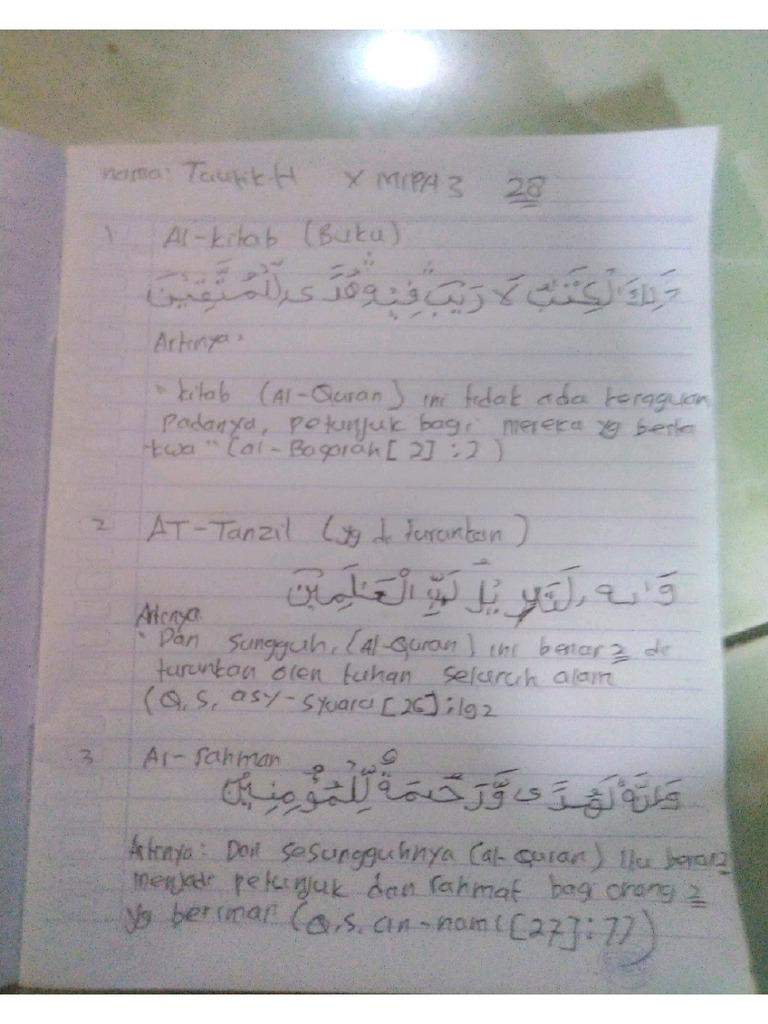 nama: Taufik H X MIPA 3 28
1 Al-kitab (Buku)
ذَلِكَ الْكِتَبُ لَا رَيْبَ فِيْهِ هُدًى لِّلْمُتَّقِيْنَ
Artinya:
"kitab (Al-Quran) ini tidak ada keraguan
Padanya, petunjuk bagi mereka yg berta
kwa" (al-Baqarah [2] : 2)
2 AT-Tanzil (yg di turunkan)
رَبِّ الْعَلَمِيْنَ
Artinya
"Dan sungguh, (Al-Quran) ini benar2 di
turunkan oleh tuhan seluruh alam
(Q,S, asy-syuara [26] : 192
3 Ar-rahman
وَاِنَّهُ لَهُدًى وَّرَحْمَةٌ لِّلْمُؤْمِنِيْنَ
Artinya: Dan sesungguhnya (al-Quran) itu benar2
menjadi petunjuk dan rahmat bagi orang2
yg beriman (Q,S, an-naml [27] : 77)